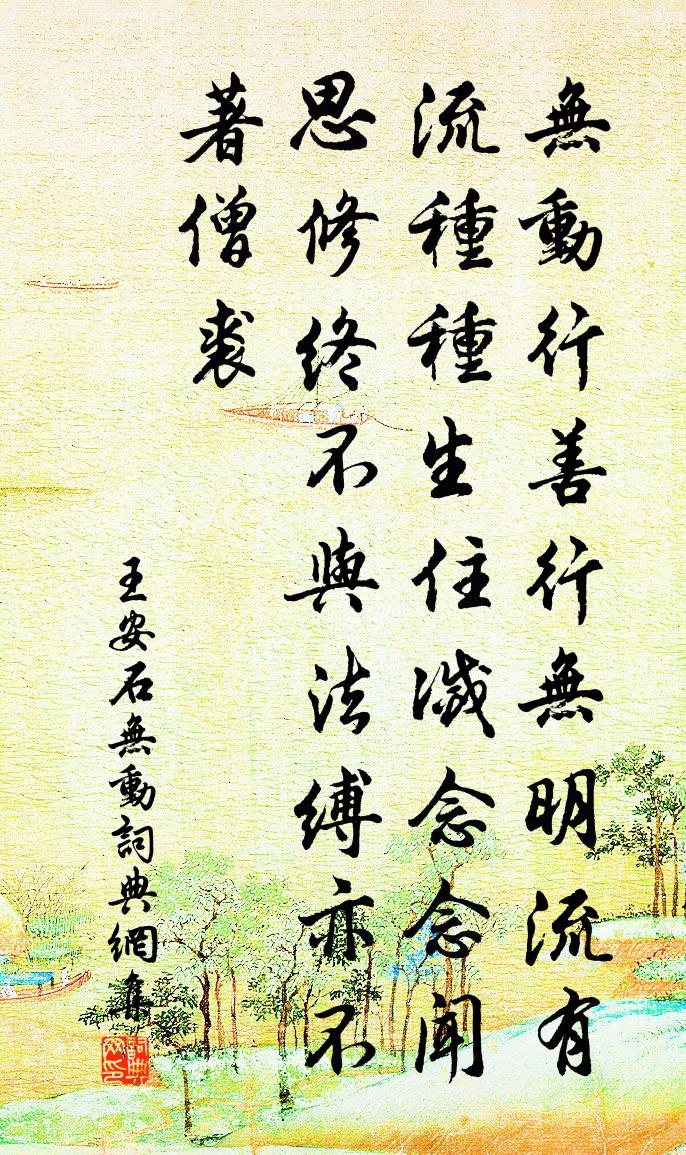 無動行善行無明流有
流種種生住滅念念聞
思修終不與法縛亦不
著僧裘
王安石無動詞典網集